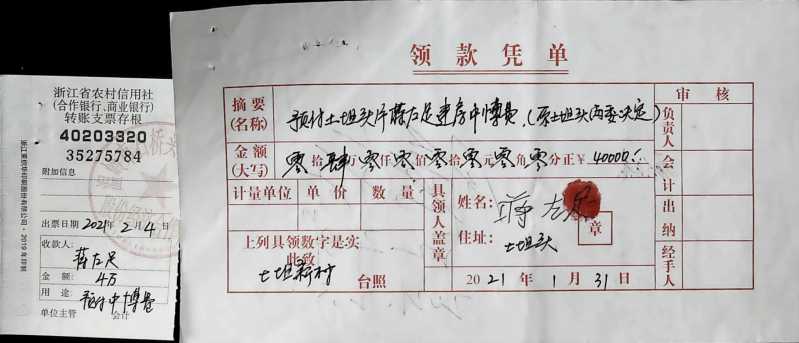 浙江省农村信用社
(合作银行、商业银行)
转账支票存根
40203320
35275784
附加信息
出票日期 2021年2月4日
收款人:
蒋左足
金 额: 4万
用 途 预付中博费
单位主管 会计
领款凭单
摘要
(名称)
预付土坦头片蒋左足建房中博费.(原土坦头两委决定)
金额
(大写)
零拾肆万零仟零佰零拾零元零角零分正¥40000.
计量单位 单价 数量
上列具领数字是实
此致
土坦新村 台照
具领人盖章
姓名: 蒋左足
章
住址: 土坦头
2021年1月31日
审核
负责人
会计
出纳
经手人